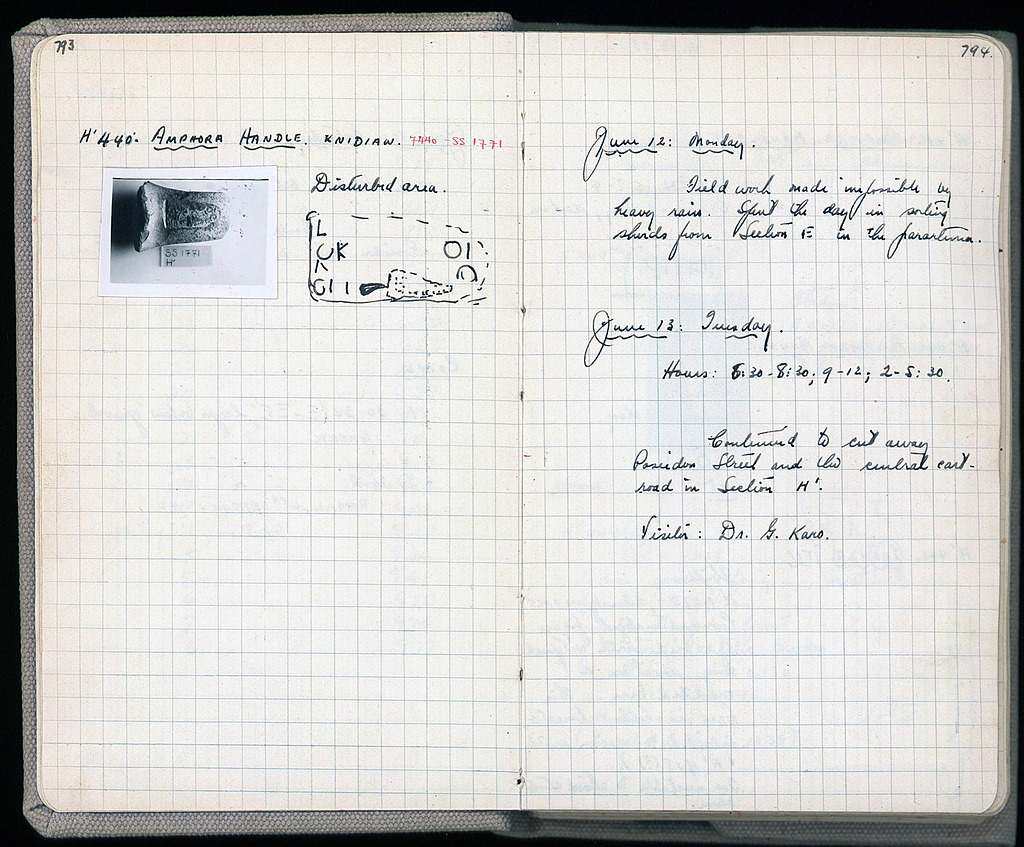 793
H'440: AMPHORA HANDLE. KNIDIAN. 7440 - SS 1771
Disturbed area.
SS 1771
H'
794.
June 12: Monday.
Field work made impossible by
heavy rain. Spent the day in sorting
sherds from Section E in the
June 13: Tuesday.
Hours: 6:30-8:30; 9-12; 2-5:30.
Continued to cut away
Poseidon Street and the central cart-
road in Section H'.
Visitor: Dr. G. Karo.